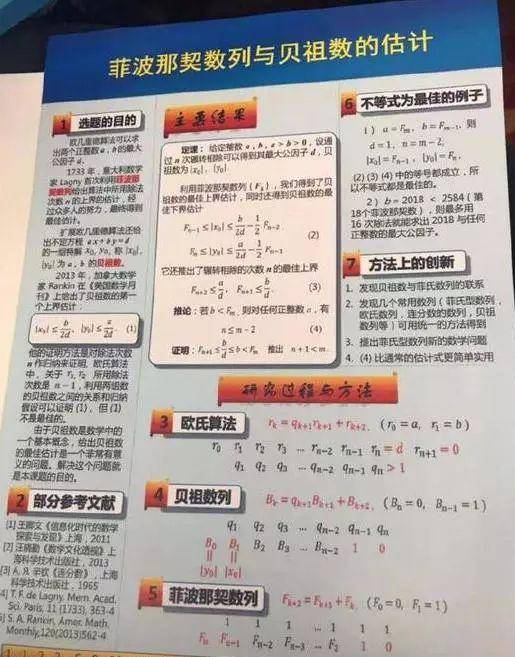 菲波那契数列与贝祖数的估计
1 选题的目的
欧几里德算法可以求
出两个正整数 a，b 的最大
公因子 d.
1733 年，意大利数学
家 Lagny 首次利用菲波那
契数列给出算法中所用除法
次数 n 的上界的估计，经
过众多人的努力，最终得到
最佳估计。
扩展欧几里德算法还给
出不定方程 ax+by=d
的一组特解 x₀, y₀, 称 |x₀|,
|y₀| 为 a, b 的贝祖数。
2013 年，加拿大数学
家 Rankin 在《美国数学月
刊》上给出了贝祖数的第一
个上界估计：
|x₀| ≤ b/2d, |y₀| ≤ a/2d. (1)
他的证明方法是对除法次数
n 作归纳来证明, 欧几里德算法
中，关于 r₁, r₂ 所用除法
次数是 n−1，利用两组数
的贝祖数之间的关系和归纳
假设可以证明 (1)，但 (1)
不是最佳的。
由于贝祖数是数学中的
一个基本概念，给出贝祖数
的最佳估计是一个非常有意
义的问题。解决这个问题就
是本课题的目的。
2 部分参考文献
[1] 王卿文《信息化时代的数学
探索与发现》上海，2011
[2] 汪晓勤《数学文化透视》上
海科学技术出版社，2013
[3] A. Я. 辛钦《连分数》，上海
科学技术出版社，1965
[4] T. F. de Lagny. Mem. Acad.
Sci. Paris, 11 (1733), 363-4
[5] S. A. Rankin, Amer. Math.
Monthly,120(2013)562-4
主要结果
定理：给定整数 a, b, a > b > 0，设通
过 n 次辗转相除可以得到其最大公因子 d，贝
祖数为 |x₀|, |y₀|.
利用菲波那契数列 {Fₖ}，我们得到了贝
祖数的最佳上界估计，同时还得到贝祖数的最
佳下界估计
Fₙ₋₁ ≤ |x₀| ≤ b/2d − 1/2 Fₙ₋₂
(2)
Fₙ ≤ |y₀| ≤ a/2d − 1/2 Fₙ₋₁
它还推出了辗转相除的次数 n 的最佳上界
Fₙ₊₂ ≤ a/d, Fₙ₊₁ ≤ b/d. (3)
推论：若 b < Fₘ，则对任何正整数 a，有
n ≤ m − 2 (4)
证明：Fₙ₊₁ ≤ b/d ≤ b < Fₘ 推出 n + 1 < m.
6 不等式为最佳的例子
1） a = Fₘ, b = Fₘ₋₁, 则
d = 1, n = m − 2,
|x₀| = Fₙ₋₁, |y₀| = Fₙ,
(2) (3) (4) 中的等号都成立，所
以不等式都是最佳的。
2） b = 2018 < 2584 (第
18个菲波那契数)，则最多用
16 次除法就能求出 2018 与任何
正整数的最大公因子。
7 方法上的创新
1. 发现贝祖数与菲氏数列的联系
2. 发现几个常用数列（菲氏型数列，
欧氏数列，连分数的数列，贝祖
数列等）可用统一的方法得到
3. 提出菲氏型数列新的数学问题
4. (4) 比通常的估计式更简单实用
研究过程与方法
3 欧氏算法 rₖ = qₖ₊₁rₖ₊₁ + rₖ₊₂, (r₀ = a, r₁ = b)
r₀ r₁ r₂ r₃ … rₙ₋₂ rₙ₋₁ rₙ = d rₙ₊₁ = 0
q₁ q₂ q₃ … qₙ₋₂ qₙ₋₁ qₙ > 1
4 贝祖数列 Bₖ = qₖ₊₁Bₖ₊₁ + Bₖ₊₂, (Bₙ = 0, Bₙ₋₁ = 1)
q₁ q₂ q₃ … qₙ₋₂ qₙ₋₁ qₙ
B₀ B₁ B₂ B₃ … Bₙ₋₂ 1 0
|| ||
|y₀| |x₀|
5 菲波那契数列 Fₖ₊₂ = Fₖ₊₁ + Fₖ, (F₀ = 0, F₁ = 1)
1 1 1 … 1 1 1
Fₙ Fₙ₋₁ Fₙ₋₂ Fₙ₋₃ … F₂ 1 0